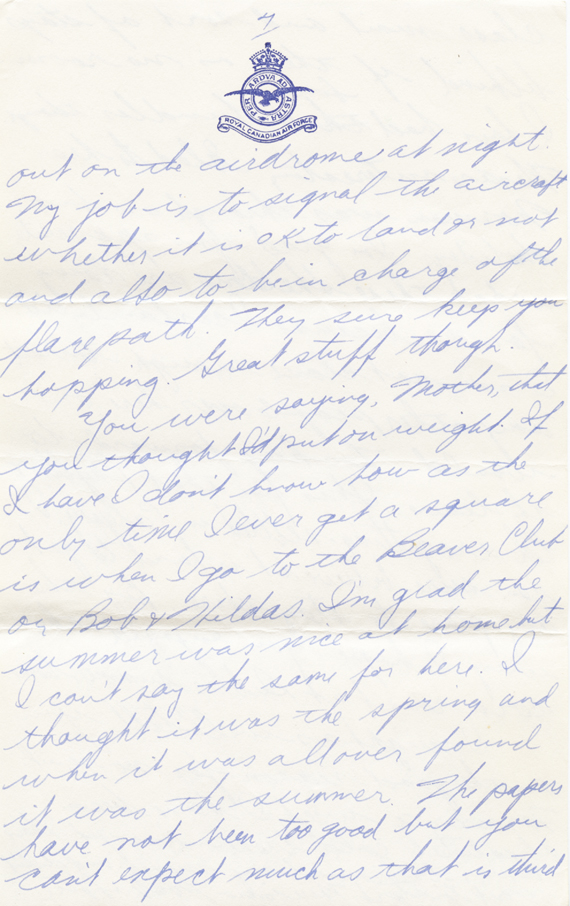 4
PER ARDVA AD ASTRA
ROYAL CANADIAN AIR FORCE
out on the airdrome at night.
My job is to signal the aircraft
whether it is OK to land or not
and also to be in charge of the
flarepath. They sure keep you
hopping. Great stuff though.
You were saying, Mother, that
you thought I'd put on weight. If
I have I don't know how as the
only time I ever get a square
is when I go to the Beaver Club
or Bob & Hildas. I'm glad the
summer was nice at home but
I can't say the same for here. I
thought it was the spring and
when it was all over found
it was the summer. The papers
have not been too good but you
can't expect much as that is third